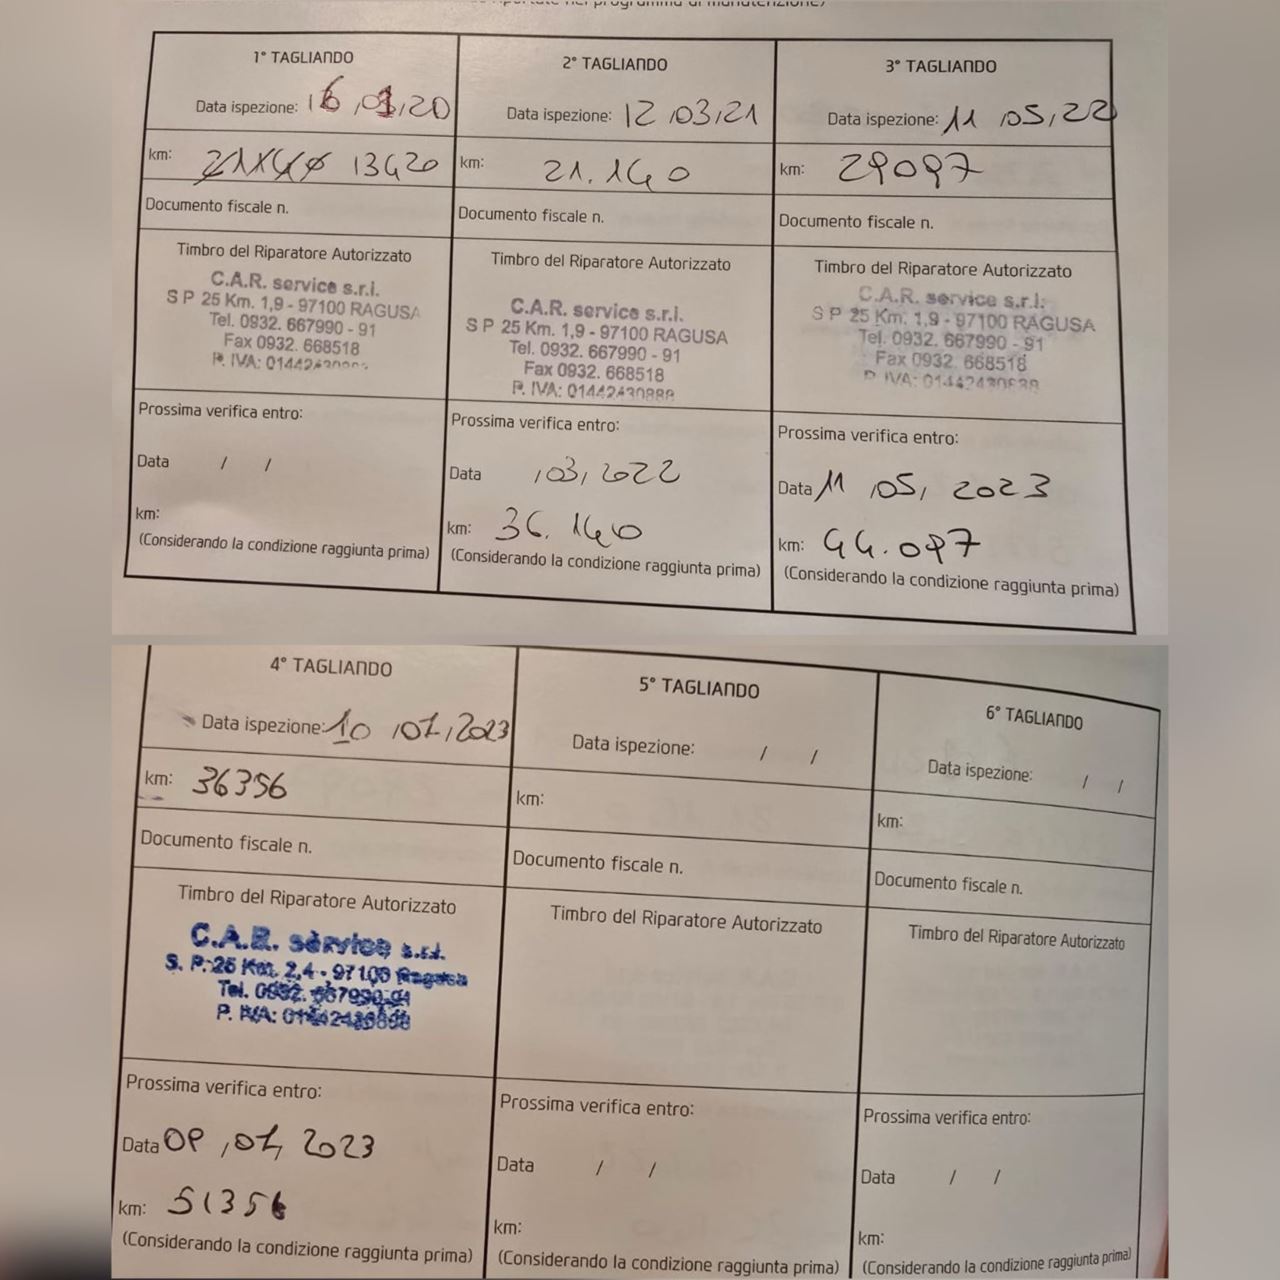 1° TAGLIANDO
Data ispezione: 16,01,20
km: 21140 13420
Documento fiscale n.
Timbro del Riparatore Autorizzato
C.A.R. service s.r.l.
S P 25 Km. 1,9 - 97100 RAGUSA
Tel. 0932. 667990 - 91
Fax 0932. 668518
P. IVA:
Prossima verifica entro:
Data / /
km:
(Considerando la condizione raggiunta prima)
2° TAGLIANDO
Data ispezione: 12 03,21
km: 21.140
Documento fiscale n.
Timbro del Riparatore Autorizzato
C.A.R. service s.r.l.
S P 25 Km. 1,9 - 97100 RAGUSA
Tel. 0932. 667990 - 91
Fax 0932. 668518
P. IVA: 01442430888
Prossima verifica entro:
Data ,03, 2022
km: 36.140
(Considerando la condizione raggiunta prima)
3° TAGLIANDO
Data ispezione: 11 ,05,22
km: 29097
Documento fiscale n.
Timbro del Riparatore Autorizzato
C.A.R. service s.r.l.
S P 25 Km. 1,9 - 97100 RAGUSA
Tel. 0932. 667990 - 91
Fax 0932. 668518
P. IVA:
Prossima verifica entro:
Data 11 ,05, 2023
km: 44.097
(Considerando la condizione raggiunta prima)
4° TAGLIANDO
Data ispezione: 10 ,07,2023
km: 36356
Documento fiscale n.
Timbro del Riparatore Autorizzato
C.A.R. service s.r.l.
S. P. 25 Km. 2,4 - 97100 Ragusa
Tel. 0932. 667990-91
P. IVA:
Prossima verifica entro:
Data 09 ,07, 2023
km: 51356
(Considerando la condizione raggiunta prima)
5° TAGLIANDO
Data ispezione: / /
km:
Documento fiscale n.
Timbro del Riparatore Autorizzato
Prossima verifica entro:
Data / /
km:
(Considerando la condizione raggiunta prima)
6° TAGLIANDO
Data ispezione: / /
km:
Documento fiscale n.
Timbro del Riparatore Autorizzato
Prossima verifica entro:
Data / /
km:
(Considerando la condizione raggiunta prima)